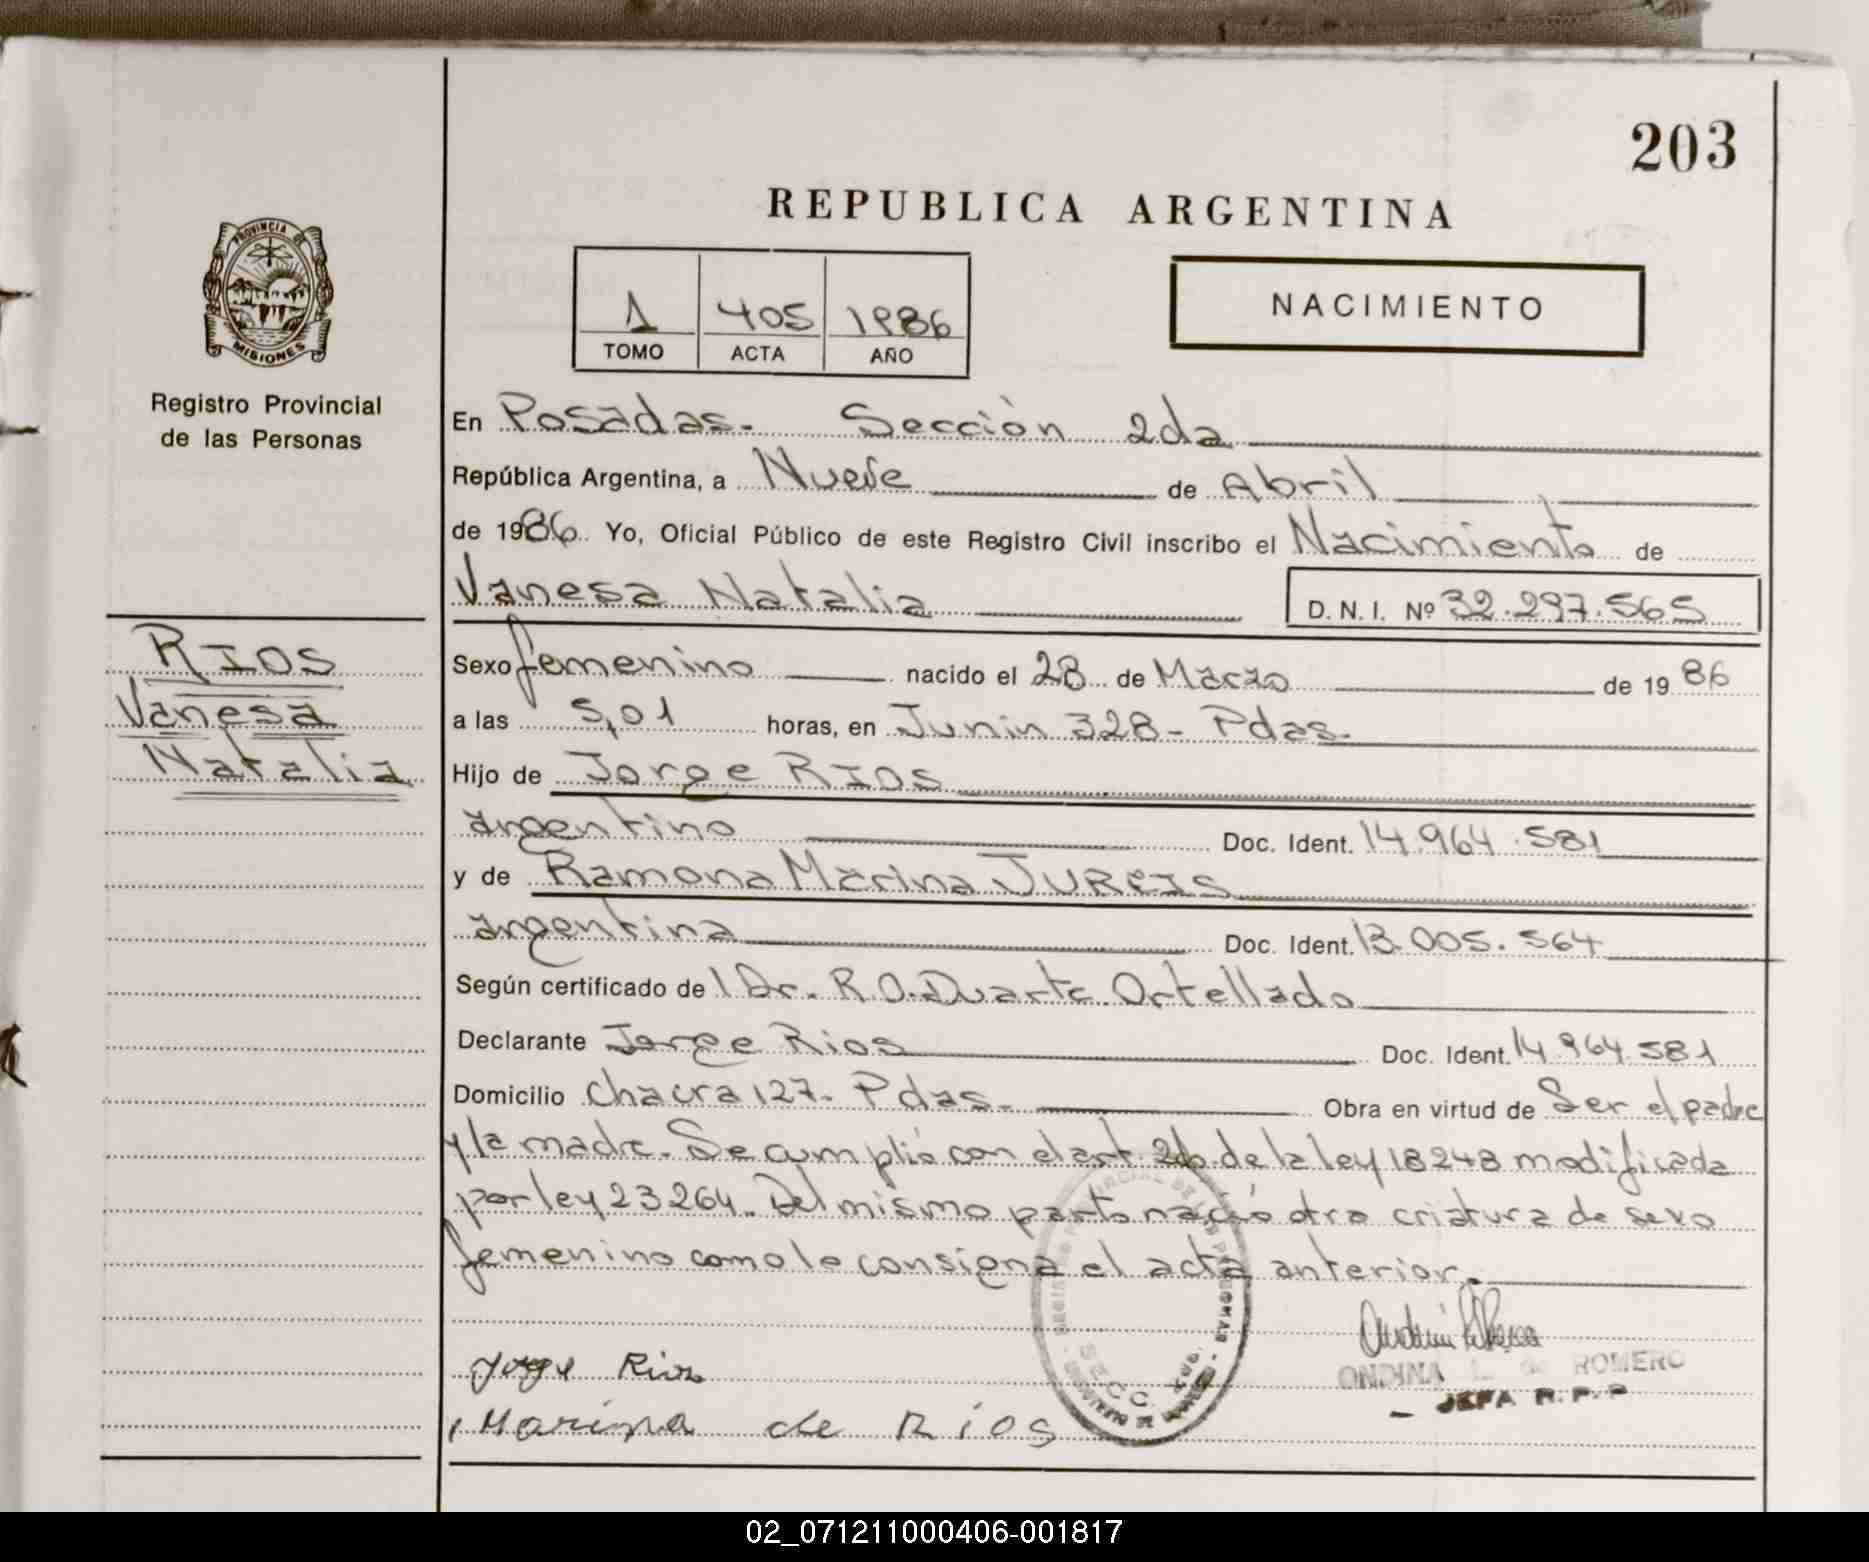 203
REPUBLICA ARGENTINA
PROVINCIA DE
MISIONES
Registro Provincial
de las Personas
1 405 1986
TOMO ACTA AÑO
NACIMIENTO
En Posadas. Sección 2da
República Argentina, a Nueve de Abril
de 1986. Yo, Oficial Público de este Registro Civil inscribo el Nacimiento de
Vanesa Natalia D.N.I. Nº 32.297.565
RIOS
Vanesa
Natalia
Sexo femenino nacido el 28 de Marzo de 1986
a las 5,01 horas, en Junin 328- Pdas.
Hijo de Jorge RIOS
argentino Doc. Ident. 14.964.581
y de Ramona Marina
argentina Doc. Ident. 13.005.564
Según certificado de l Dr. R.O. Duarte Ortellado
Declarante Jorge Rios Doc. Ident. 14.964.581
Domicilio Chacra 127- Pdas. Obra en virtud de Ser el padre
y la madre. Se cumplió con el art. de la ley 18248 modificada
por ley 23264. Del mismo parto nació otra criatura de sexo
femenino como lo consigna el acta anterior.
Jorge Rios
Marina de Rios
ONDINA L. de ROMERO
JEFA R.P.P
02_071211000406-001817